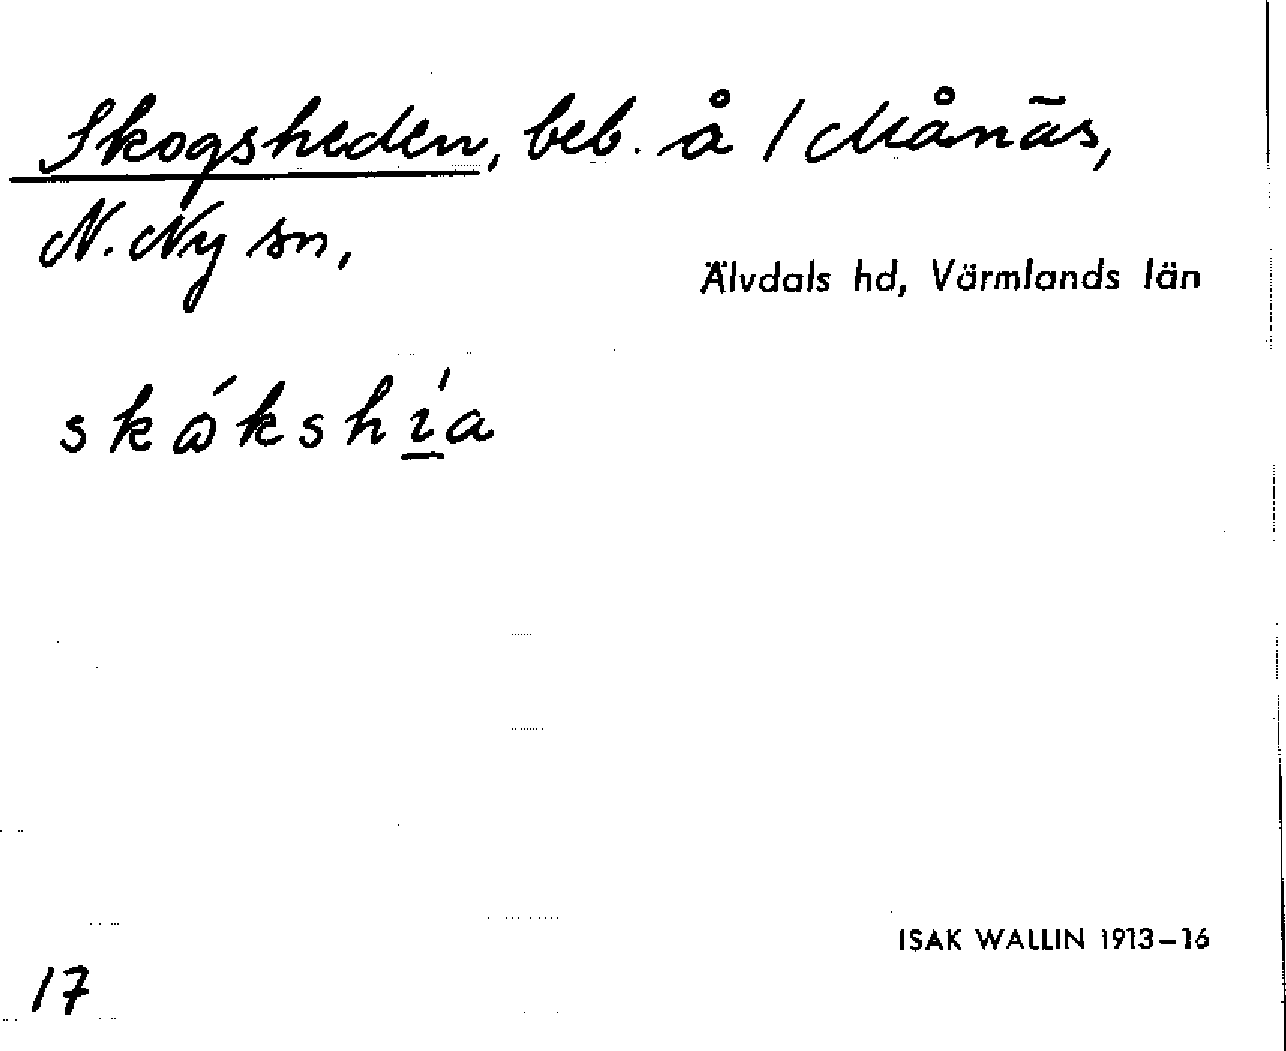 Skogsheden, beb. å 1 Månäs,
N. Ny sn,
Älvdals hd, Värmlands län
skɷ́kshı̱́a
ISAK WALLIN 1913–16
17